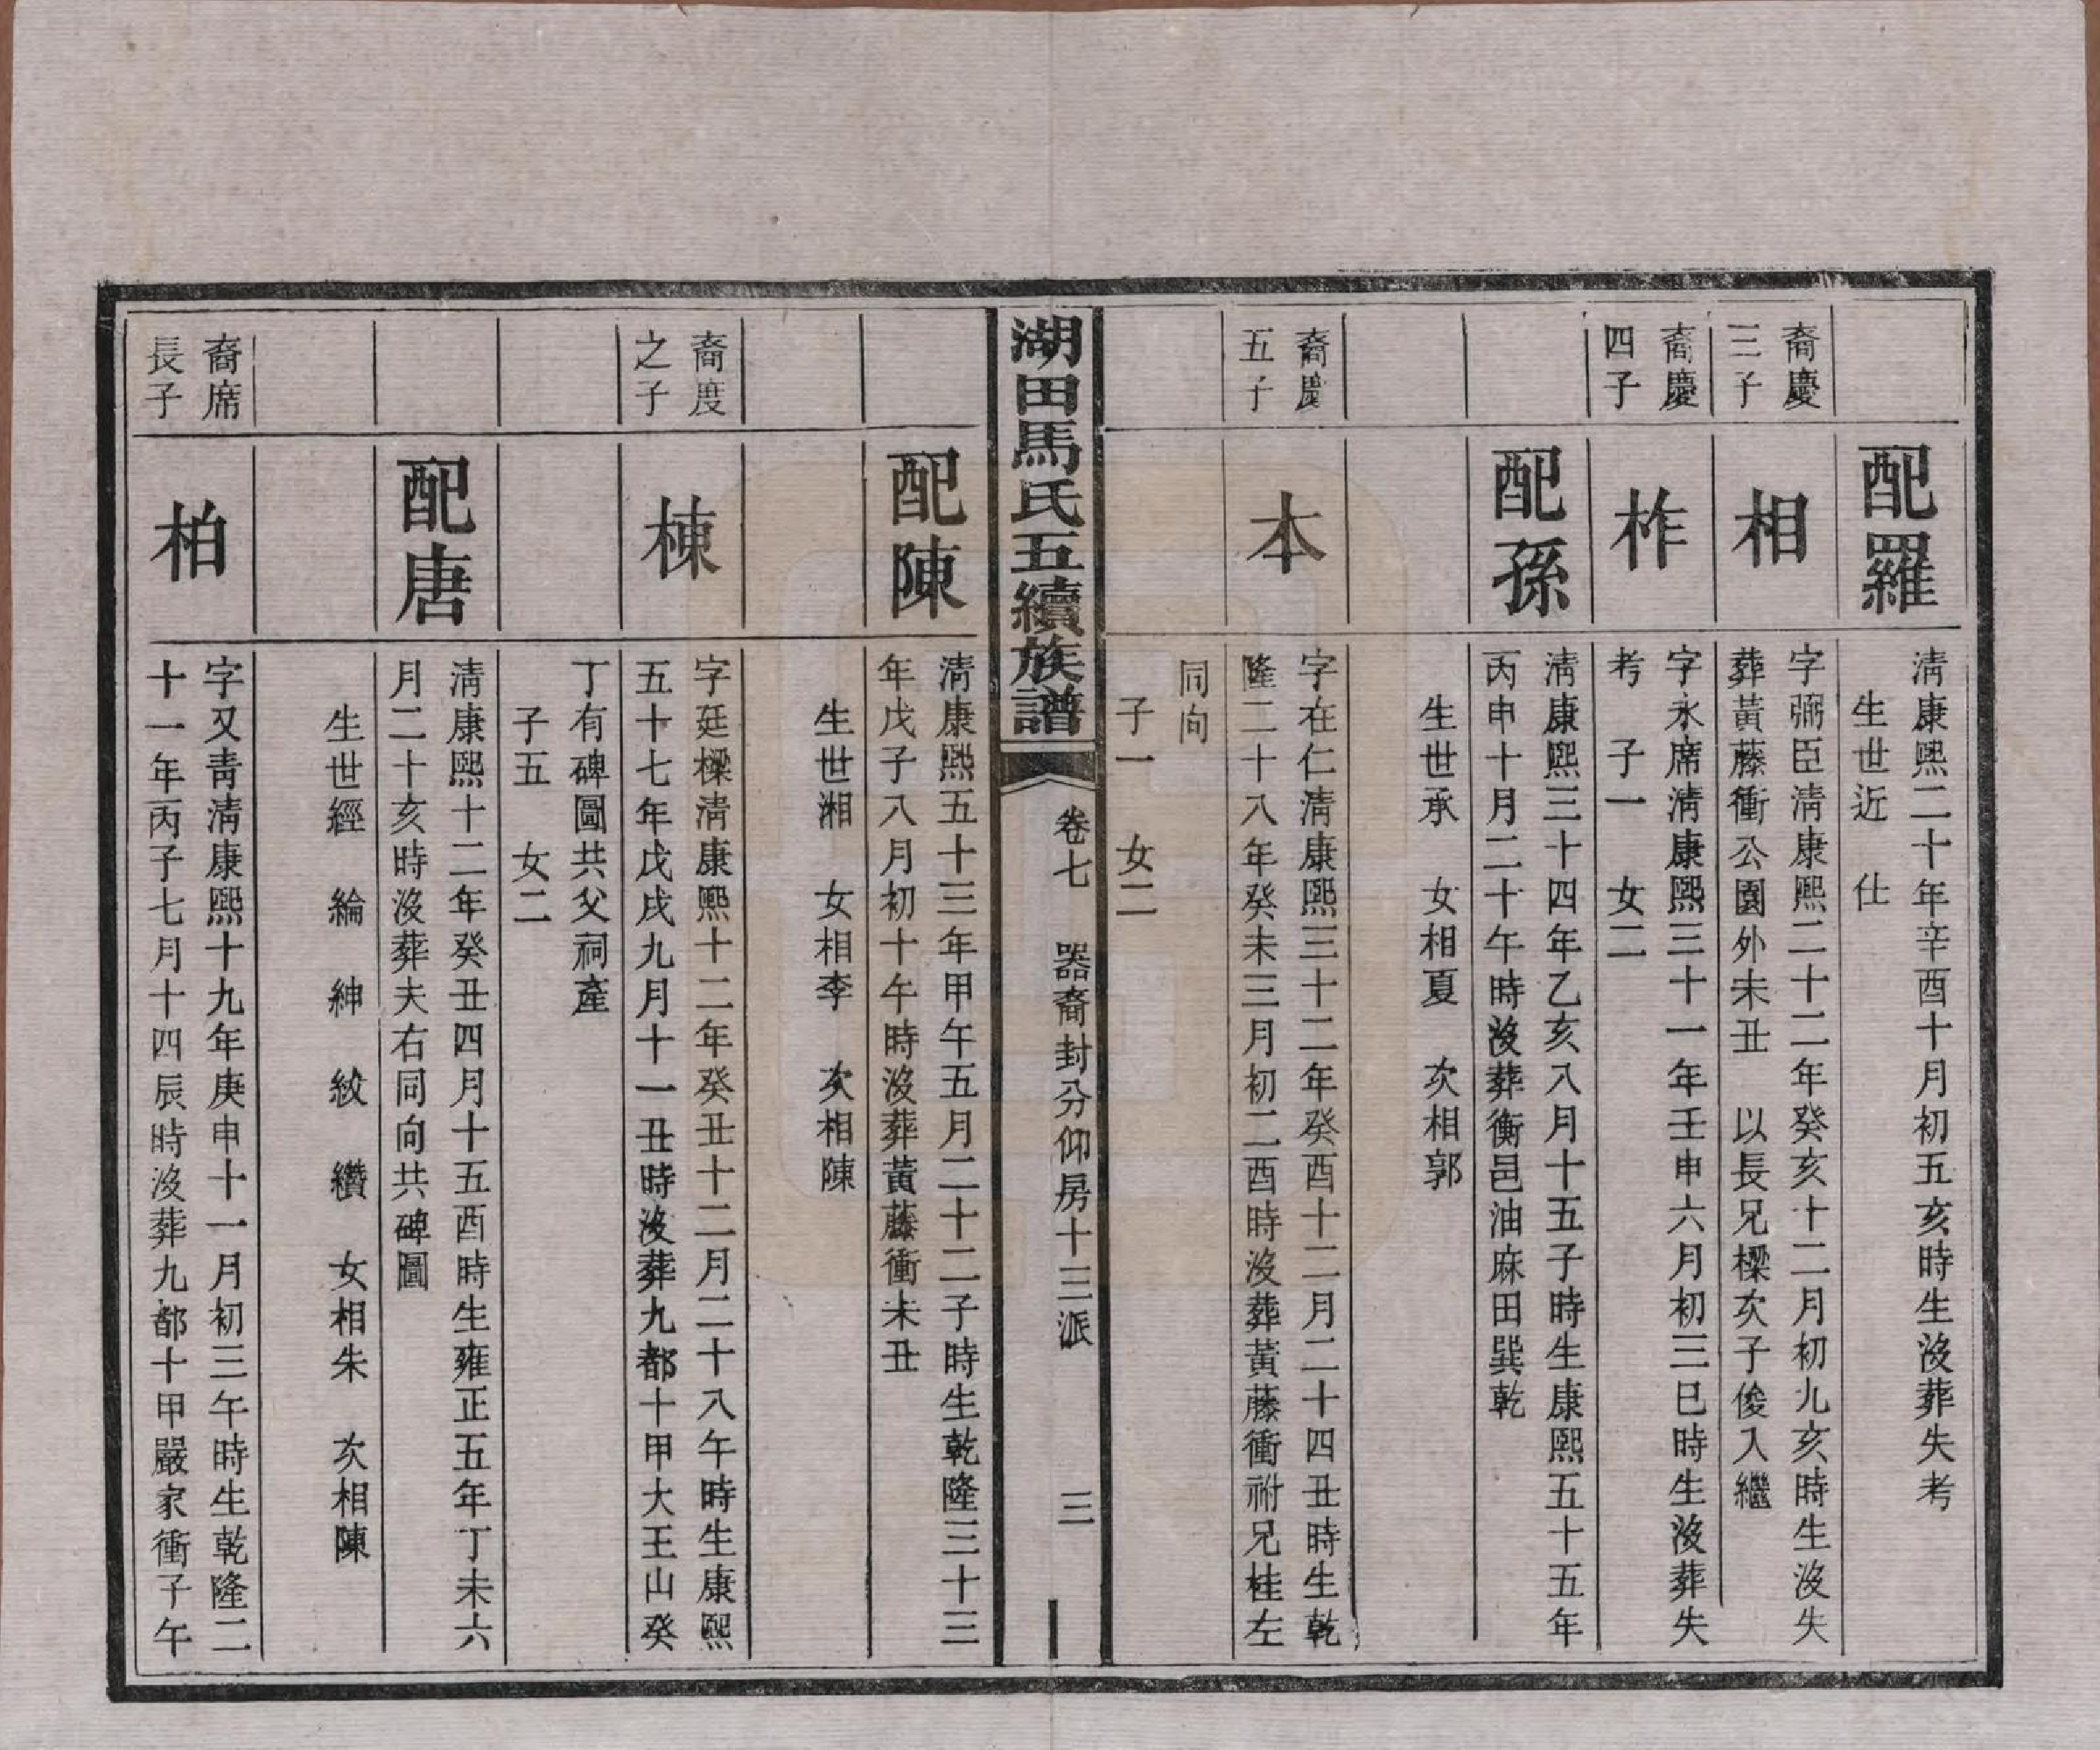 配羅
淸康熙二十年辛酉十月初五亥時生沒葬失考
生世近　仕
裔慶
三子
相
字弼臣淸康熙二十二年癸亥十二月初九亥時生沒失
葬黃藤衝公園外未丑　以長兄樑次子俊入繼
裔慶
四子
柞
字永席淸康熙三十一年壬申六月初三巳時生沒葬失
考　子一　女二
配孫
淸康熙三十四年乙亥八月十五子時生康熙五十五年
丙申十月二十午時沒葬衡邑油麻田巽乾
生世承　女相夏　次相郭
裔慶
五子
本
字在仁淸康熙三十二年癸酉十二月二十四丑時生乾
隆二十八年癸未三月初二酉時沒葬黃藤衝祔兄桂左
同向
子一　女二
湖田馬氏五續族譜
卷七　器裔封分仰房十三派　三
配陳
淸康熙五十三年甲午五月二十二子時生乾隆三十三
年戊子八月初十午時沒葬黃藤衝未丑
生世湘　女相李　次相陳
裔度
之子
棟
字廷樑淸康熙十二年癸丑十二月二十八午時生康熙
五十七年戊戌九月十一丑時沒葬九都十甲大王山癸
丁有碑圖共父祠產
子五　女二
配唐
淸康熙十二年癸丑四月十五酉時生雍正五年丁未六
月二十亥時沒葬夫右同向共碑圖
生世經　綸　紳　紋　纘　女相朱　次相陳
裔席
長子
柏
字又靑淸康熙十九年庚申十一月初三午時生乾隆二
十一年丙子七月十四辰時沒葬九都十甲嚴家衝子午